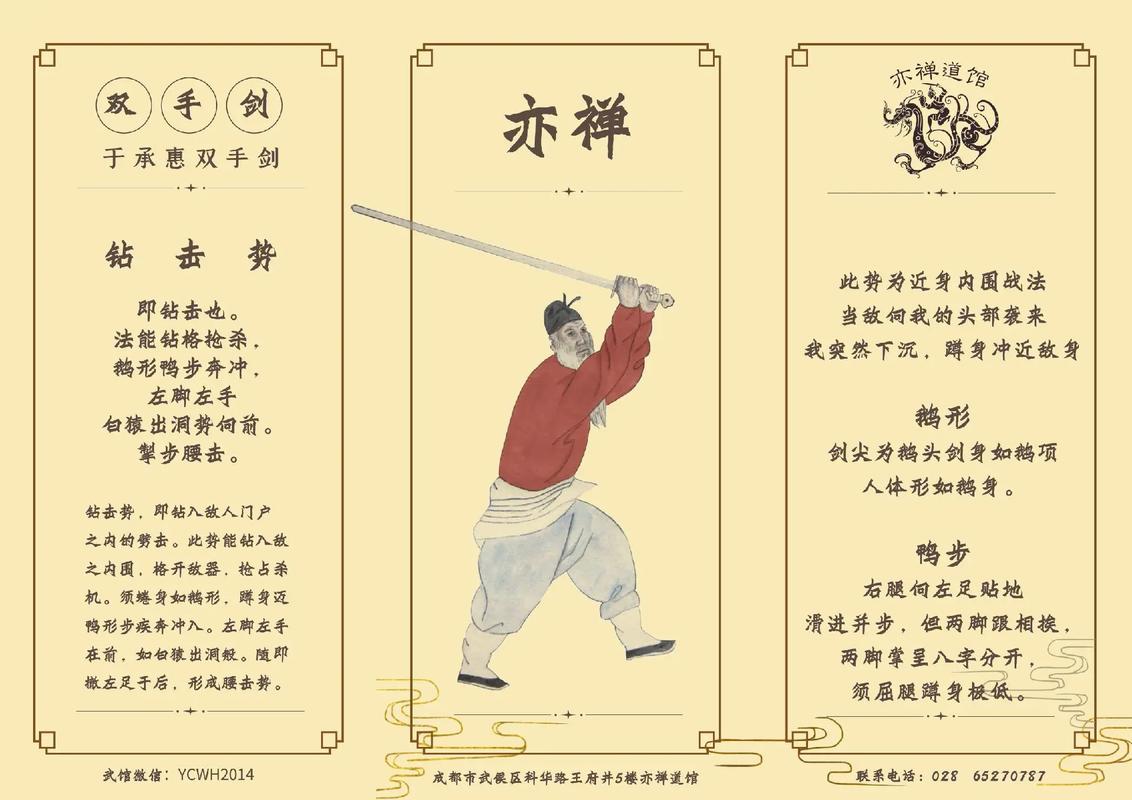 双手剑
于承惠双手剑
钻击势
即钻击也。
法能钻格抢杀，
鹅形鸭步奔冲，
左脚左手
白猿出洞势向前。
掣步腰击。
钻击势，即钻入敌人门户
之内的劈击。此势能钻入敌
之内围，格开敌器，抢占杀
机。须蜷身如鹅形，蹲身迈
鸭形步疾奔冲入。左脚左手
在前，如白猿出洞般。随即
撤左足于后，形成腰击势。
武馆微信：YCWH2014
亦禅
成都市武侯区科华路王府井5楼亦禅道馆
亦禅道馆
此势为近身内围战法
当敌向我的头部袭来
我突然下沉，蹲身冲近敌身
鹅形
剑尖为鹅头剑身如鹅项
人体形如鹅身。
鸭步
右腿向左足贴地
滑进并步，但两脚跟相挨，
两脚掌呈八字分开，
须屈腿蹲身极低。
联系电话：028 65270787